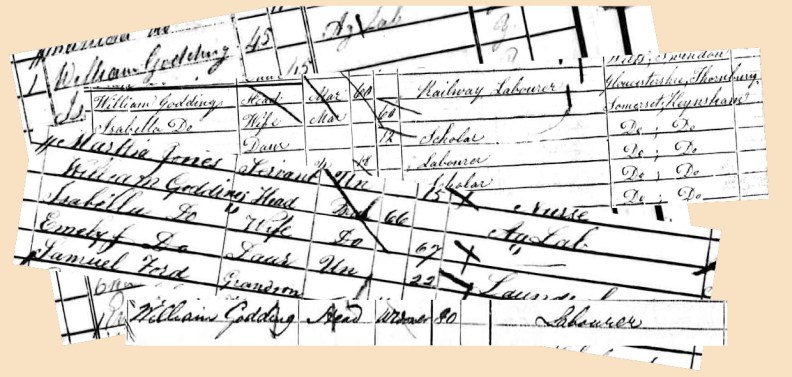 William Godding 45 Ag Lab
45
Wilts, Swindon
William Goddings Head Mar 60 Railway Labourer Gloucestershire, Thornbury
Isabella Do Wife Mar 60 Somerset, Keynsham
Daur 12 Scholar Do ; Do
Labourer Do ; Do
Scholar Do ; Do
Martha Jones Servant Un 15 Nurse
William Godding Head 66 Ag Lab
Isabella Do Wife Do 67
Emely J Do Daur Un 22
Samuel Ford Grandson
William Godding Head Widower 80 Labourer